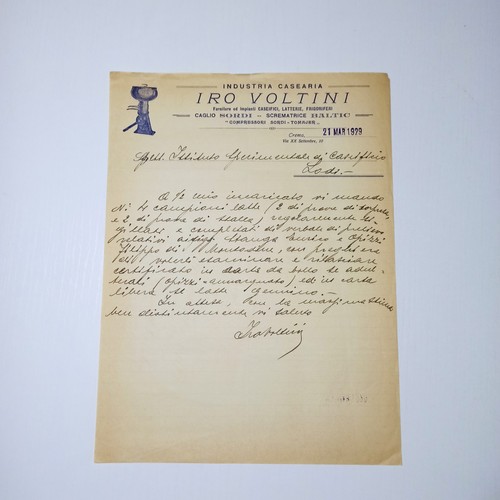 INDUSTRIA CASEARIA
IRO VOLTINI
Forniture ed Impianti CASEIFICI, LATTERIE, FRIGORIFERI
CAGLIO SORDI - SCREMATRICE BALTIC
"COMPRESSORI SORDI-TOMAJER"
Crema, 21 MAR 1929
Via XX Settembre,
Spett. Istituto Sperimentale di Caseificio
Lodi.-
A 1/2 mio incaricato vi mando
N. 4 campioni latte (2 di prove di
e 2 di prova di stalla), regolarmente si-
gillati e completati di verbali di prelievo
relativi ai Stanga Enrico e Opizzi
Filippo di Montodine, con preghiera
di volerli esaminare e rilasciare
certificato in carta da bollo se adul-
terati (Opizzi - annacquato) ed in carta
libera se latte genuino.-
In attesa, con la massima stima
ben distintamente vi saluto
Iro Voltini